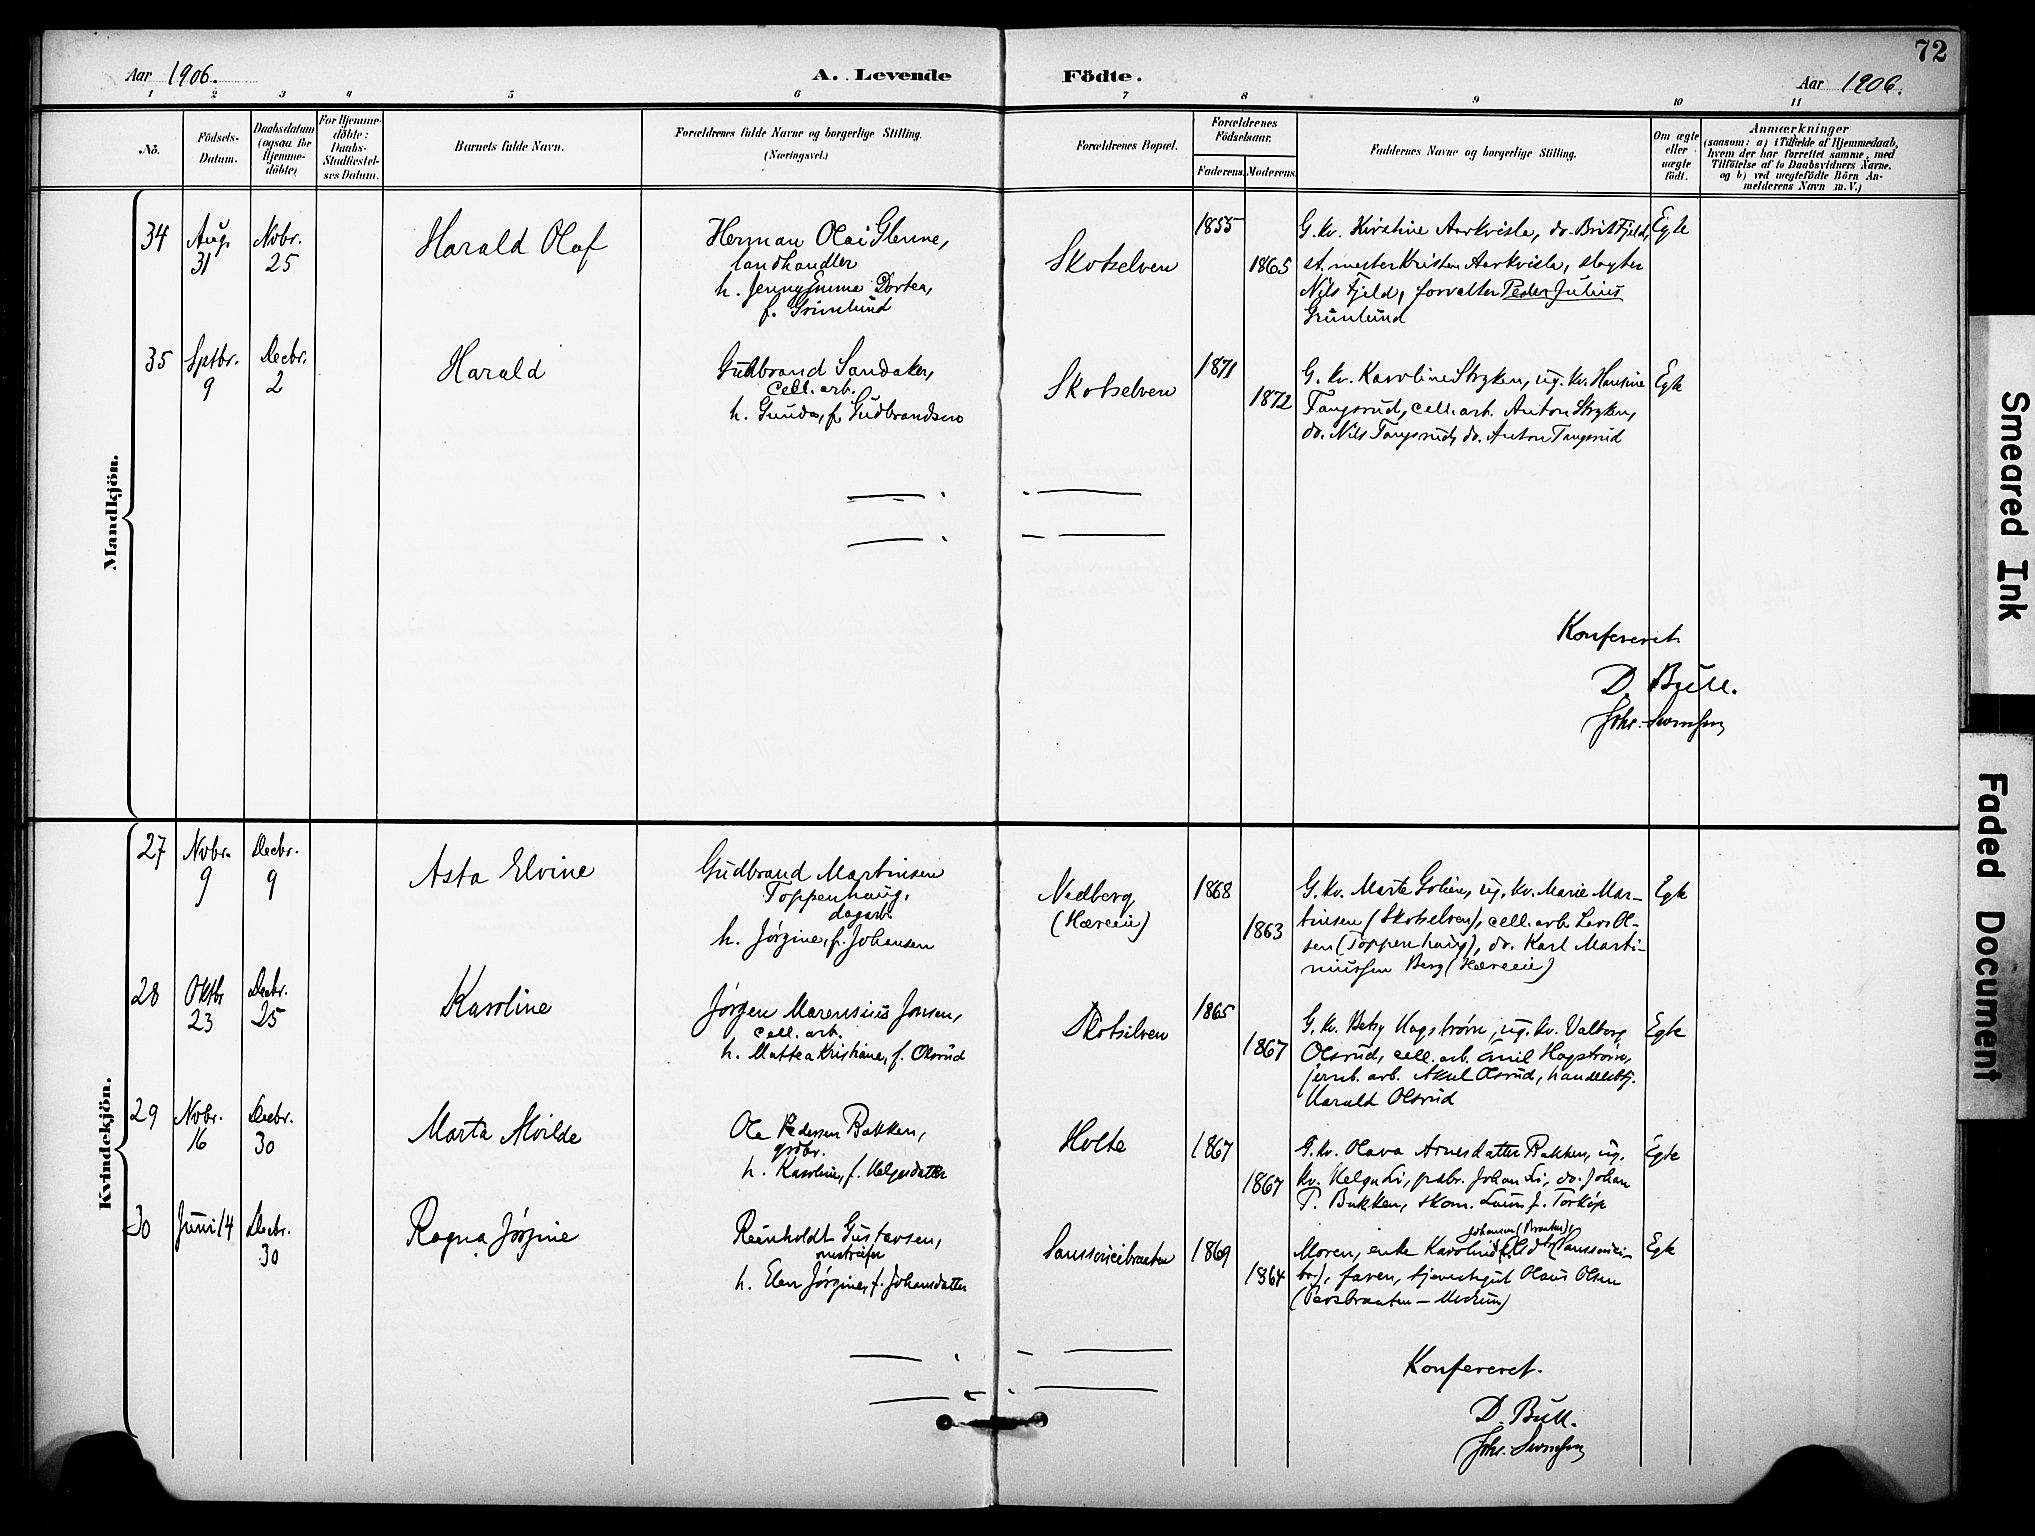 72
Aar 1906.
A. Levende Födte.
Aar 1906.
1 2 3 4 5 6 7 8 9 10 11
No.
Födsels-
Datum.
Daabsdatum
(ogsaa for
Hjemme-
döbte)
For Hjemme-
döbte:
Daabs-
Stadfæstel-
ses Datum.
Barnets fulde Navn.
Forældrenes fulde Navne og borgerlige Stilling.
(Næringsvei.)
Forældrenes Bopæl.
Forældrenes
Födselsaar.
Faderens. Moderens.
Faddernes Navne og borgerlige Stilling.
Om ægte
eller
uægte
födt.
Anmærkninger
(saasom: a) i Tilfælde af Hjemmedaab,
hvem der har forrettet samme, med
Tilföielse af to Daabsvidners Navne.
og b) ved uægtefödte Börn An-
melderens Navn m. V.)
Mandkjön.
34
Aug.
31
Novbr.
25
Harald Olaf
Herman Olai Glenne,
landhandler
h. Jenny Emma Dortea,
f. Grünlund
Skotselven
1855
1865
G. kv. Kirstine Aarkvisla, do. Brit Fjeld,
st. mester Kristen Aarkvisla, slagter
Nils Fjeld, forvalter Peder Julius
Grünlund
Egte
35
Sptbr.
9
Decbr.
2
Harald
Gudbrand Sandaker,
cell. arb.
h. Gunda, f. Gudbrandsen
Skotselven
1871
1872
G. kv. Karoline Stryken, ug. kv. Hansine
Tangsrud, cell. arb. Anton Stryken,
do. Nils Tangsrud, do. Anton Tangsrud
Egte
Konfereret
D. Bull.
Kvindekjön.
27
Novbr.
9
Decbr.
9
Asta Elvine
Gudbrand Martinsen
Toppenhaug,
dagarb.
h. Jørgine, f. Johansen
Nedberg
(Hæreie)
1868
1863
G. kv. Marte Golien, ug. kv. Marie Mar-
tinsen (Skotselven), cell. arb. Lars Ol-
sen (Toppenhaug), do. Karl Marti-
niussen Berg (Hæreeie)
Egte
28
Oktbr
23
Decbr.
25
Karoline
Jørgen Marensius Jonsen,
cell. arb.
h. Mattea Kristiane, f. Olsrud
Skotselven
1865
1867
G. kv. Betsy Hagstrøm, ug. kv. Valborg
Olsrud, cell. arb. Emil Hagstrøm,
jernb. arb. Aksel Olsrud, handelsbtj.
Harald Olsrud
Egte
29
Novbr.
16
Decbr.
30
Marta Alvilde
Ole Pedersen Bakken,
grdbr.
h. Karoline, f. Helgesdatter
Holte
1867
1867
G. kv. Olava Arnesdatter Bakken, ug.
kv. Helga Li, grdbr. Johan Li, do. Johan
P. Bakken, skom. Torkóp
Egte
30
Juni 14
Decbr.
30
Ragna Jørgine
Reinholdt Gustavsen,
h. Elen Jørgine, f. Johansdatter
Sanssoucibraaten
1869
1864
Moren, enke Karoline
faren, tjenestegut Olaus Olsen
(Persbraaten - Modum)
Egte
Konfereret.
D. Bull.
Smeared Ink
Faded Document